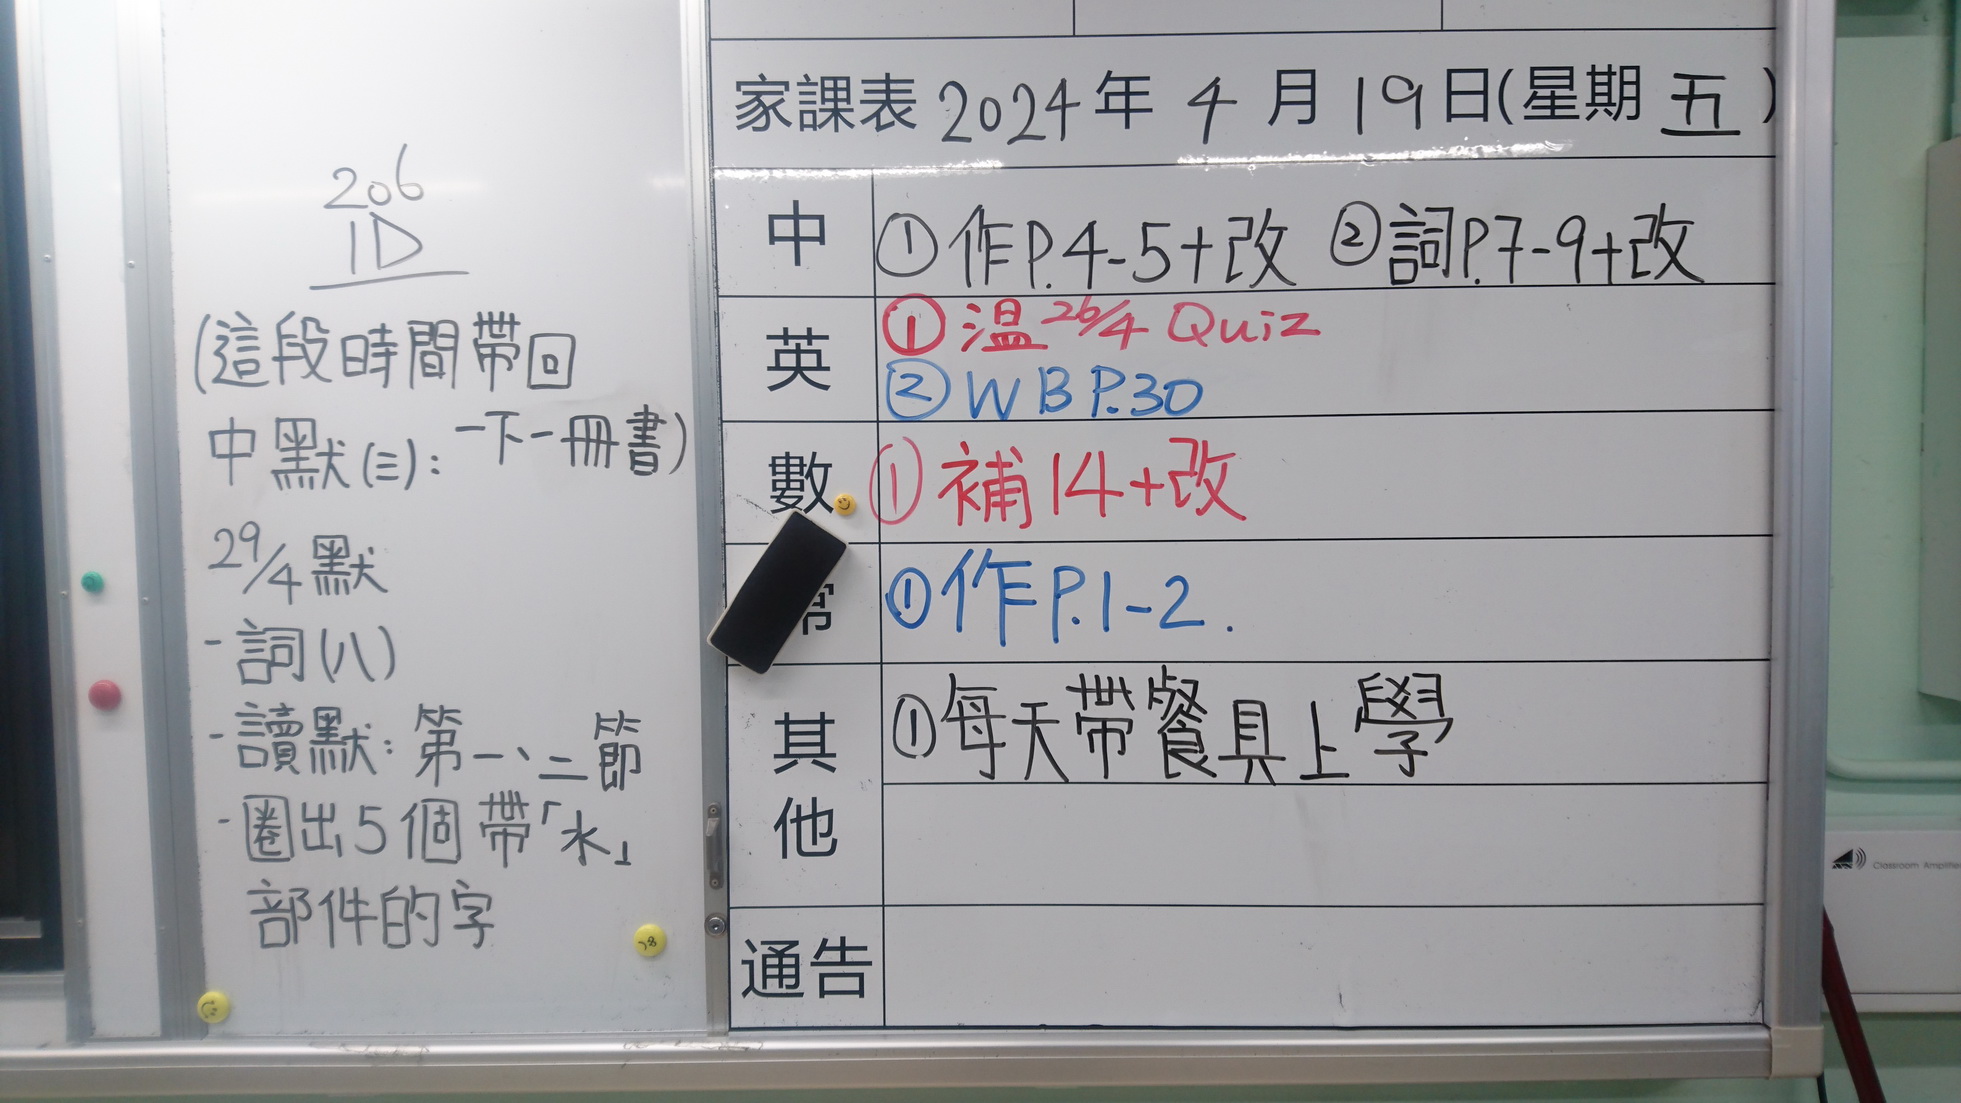 206
1D
(這段時間帶回
中默(三): 一下一冊書)
29/4 默
- 詞(八)
- 讀默: 第一、二節
- 圈出5個帶「水」
部件的字
家課表 2024年 4月 19日(星期 五)
中 ① 作P.4-5+改 ② 詞P.7-9+改
英 ① 溫 26/4 Quiz
② WB P.30
數 ① 補14+改
常 ① 作P.1-2.
其他 ① 每天帶餐具上學
通告
Classroom Amplifier